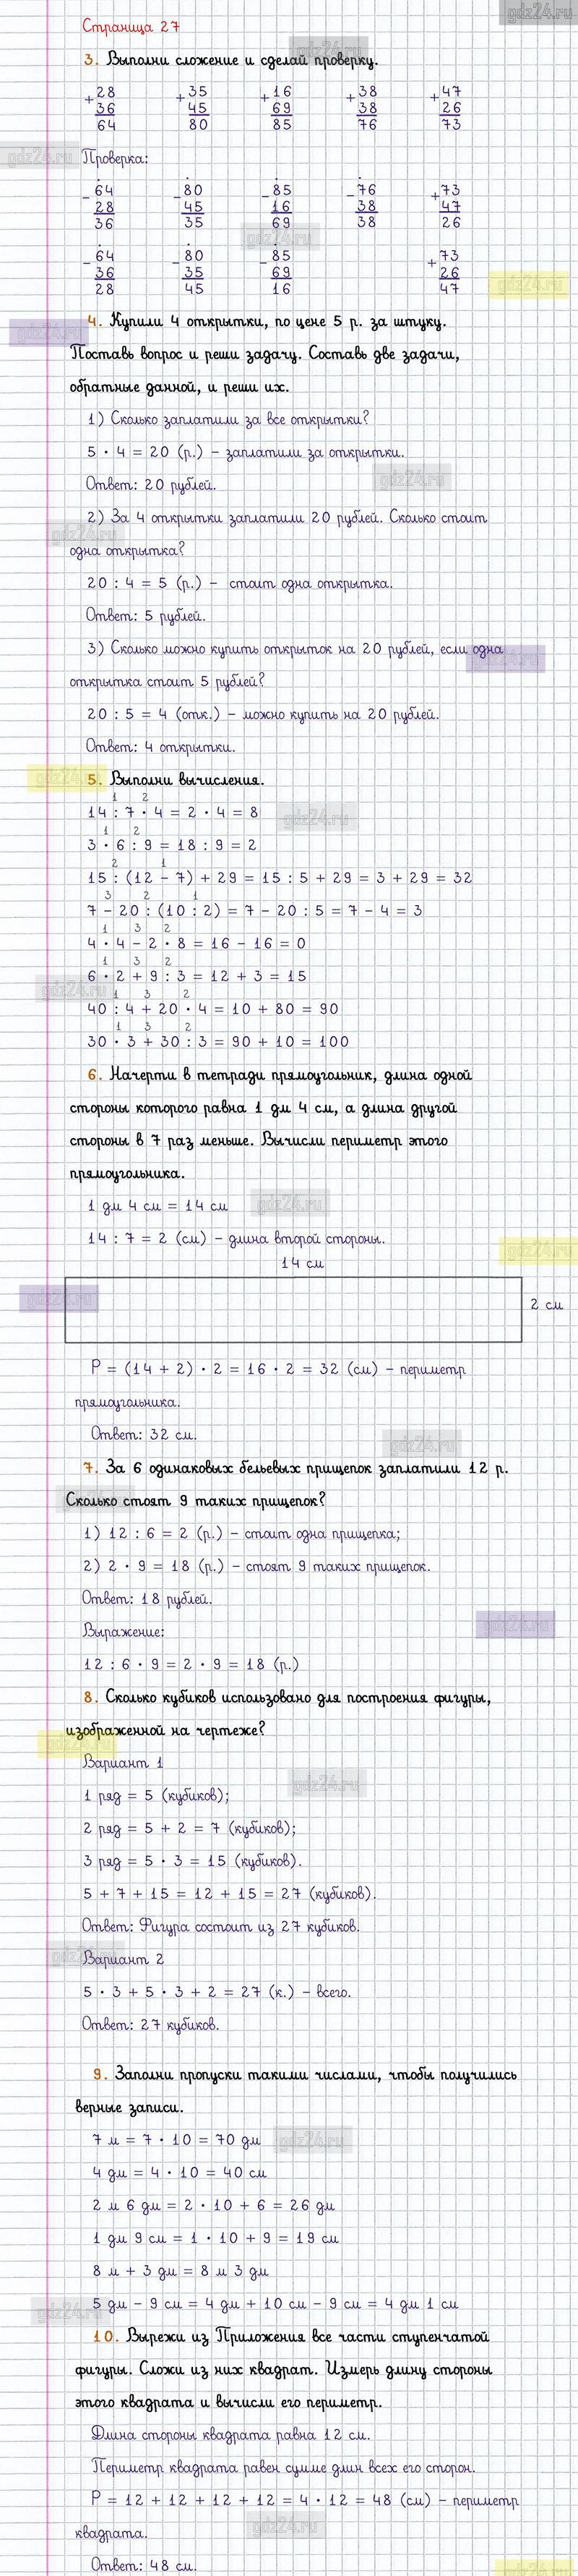 gdz24.ru
Страница 27
3. Выполни сложение и сделай проверку.
+28 +35 +16 +38 +47
36 45 69 38 26
64 80 85 76 73
Проверка:
-64 -80 -85 -76 +73
28 45 16 38 47
36 35 69 38 26
-64 -80 -85 +73
36 35 69 26
28 45 16 47
4. Купили 4 открытки, по цене 5 р. за штуку.
Поставь вопрос и реши задачу. Составь две задачи,
обратные данной, и реши их.
1) Сколько заплатили за все открытки?
5 · 4 = 20 (р.) – заплатили за открытки.
Ответ: 20 рублей.
2) За 4 открытки заплатили 20 рублей. Сколько стоит
одна открытка?
20 : 4 = 5 (р.) – стоит одна открытка.
Ответ: 5 рублей.
3) Сколько можно купить открыток на 20 рублей, если одна
открытка стоит 5 рублей?
20 : 5 = 4 (отк.) – можно купить на 20 рублей.
Ответ: 4 открытки.
5. Выполни вычисления.
1 2
14 : 7 · 4 = 2 · 4 = 8
1 2
3 · 6 : 9 = 18 : 9 = 2
2 1
15 : (12 – 7) + 29 = 15 : 5 + 29 = 3 + 29 = 32
3 2 1
7 – 20 : (10 : 2) = 7 – 20 : 5 = 7 – 4 = 3
1 3 2
4 · 4 – 2 · 8 = 16 – 16 = 0
1 3 2
6 · 2 + 9 : 3 = 12 + 3 = 15
1 3 2
40 : 4 + 20 · 4 = 10 + 80 = 90
1 3 2
30 · 3 + 30 : 3 = 90 + 10 = 100
6. Начерти в тетради прямоугольник, длина одной
стороны которого равна 1 дм 4 см, а длина другой
стороны в 7 раз меньше. Вычисли периметр этого
прямоугольника.
1 дм 4 см = 14 см
14 : 7 = 2 (см) – длина второй стороны.
14 см
2 см
P = (14 + 2) · 2 = 16 · 2 = 32 (см) – периметр
прямоугольника.
Ответ: 32 см.
7. За 6 одинаковых бельевых прищепок заплатили 12 р.
Сколько стоят 9 таких прищепок?
1) 12 : 6 = 2 (р.) – стоит одна прищепка;
2) 2 · 9 = 18 (р.) – стоят 9 таких прищепок.
Ответ: 18 рублей.
Выражение:
12 : 6 · 9 = 2 · 9 = 18 (р.)
8. Сколько кубиков использовано для построения фигуры,
изображенной на чертеже?
Вариант 1
1 ряд = 5 (кубиков);
2 ряд = 5 + 2 = 7 (кубиков);
3 ряд = 5 · 3 = 15 (кубиков).
5 + 7 + 15 = 12 + 15 = 27 (кубиков).
Ответ: Фигура состоит из 27 кубиков.
Вариант 2
5 · 3 + 5 · 3 + 2 = 27 (к.) – всего.
Ответ: 27 кубиков.
9. Заполни пропуски такими числами, чтобы получились
верные записи.
7 м = 7 · 10 = 70 дм
4 дм = 4 · 10 = 40 см
2 м 6 дм = 2 · 10 + 6 = 26 дм
1 дм 9 см = 1 · 10 + 9 = 19 см
8 м + 3 дм = 8 м 3 дм
5 дм – 9 см = 4 дм + 10 см – 9 см = 4 дм 1 см
10. Вырежи из Приложения все части ступенчатой
фигуры. Сложи из них квадрат. Измерь длину стороны
этого квадрата и вычисли его периметр.
Длина стороны квадрата равна 12 см.
Периметр квадрата равен сумме длин всех его сторон.
P = 12 + 12 + 12 + 12 = 4 · 12 = 48 (см) – периметр
квадрата.
Ответ: 48 см.